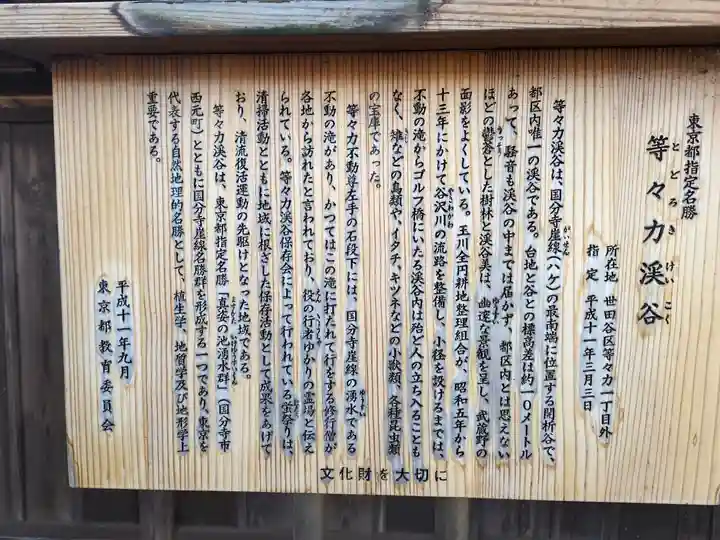 東京都指定名勝
等々力渓谷
とどろきけいこく
所在地 世田谷区等々力一丁目外
指定 平成十一年三月三日
等々力渓谷は、国分寺崖線(ハケ)の最南端に位置する開析谷で、
都区内唯一の渓谷である。台地と谷との標高差は約10メートル
あって、騒音も渓谷の中までは届かず、都区内とは思えない
ほどの鬱蒼とした樹林と渓谷美は、幽邃な景観を呈し、武蔵野の
面影をよくしている。玉川全円耕地整理組合が、昭和五年から
十三年にかけて谷沢川の流路を整備し、小径を設けるまでは、
不動の滝からゴルフ橋にいたる渓谷内は殆ど人の立ち入ることも
なく、雉などの鳥類や、イタチ、キツネなどの小獣類、各種昆虫類
の宝庫であった。
等々力不動尊左手の石段下には、国分寺崖線の湧水である
不動の滝があり、かつてはこの滝に打たれて行をする修行僧が
各地から訪れたと言われており、役の行者ゆかりの霊場と伝え
られている。等々力渓谷保存会によって行われている蛍祭りは、
清掃活動とともに地域に根ざした保存活動として成果をあげて
おり、清流復活運動の先駆けとなった地域である。
等々力渓谷は、東京都指定名勝「真姿の池湧水群」(国分寺市
西元町)とともに国分寺崖線名勝群を形成する一つであり、東京を
代表する自然地理的名勝として、植生学、地質学及び地形学上
重要である。
平成十一年九月
東京都教育委員会
文化財を大切に